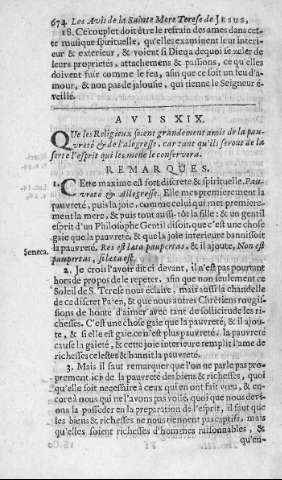 674 Les Avis de la Sainte Mere Terese de JESUS,
18. Ce couplet doit être le refrain des ames dans cet-
te musique spirituelle, qu'elles examinent leur interi-
eur & exterieur, & voient si Dieqa dequoi le zeler de
leurs proprietés, attachemens & passions, ce qu'elles
doivent fuir comme le feu, afin que ce soit un feu d'a-
mour, & non pas de jalousie, qui tienne le Seigneur é-
veillé.
AVIS XIX.
QUe les Religieux soient grandement amis de la pau-
vreté & de l'alegresse, car tant qu'ils seront de la
sorte l'esprit qui les mene le conservera.
REMARQUES.
1. CEtte maxime est fort discrete & spirituelle. Pau-
vreté & allegresse. Elle mes premierement la
pauvreté, puis la joie, comme celui qui met premiere-
ment la mere, & puis tout aussi-tôt la fille: & un gentil
esprit d'un Philosophe Gentil disoit, que c'est une chose
gaie que la pauvreté, & que la joie interieure bannissoit
la pauvreté. Res est læta paupertas, & il ajoute, Non est
Seneca.
paupertas, si læta est.
2. Je croi l'avoir dit ci devant, il n'est pas pourtant
hors de propos de le repeter, afin que non seulement ce
Soleil de S. Terese nous éclaire, mais aussi la chandelle
de ce discret Paien, & que nous autres Chrêtiens rougis-
sions de honte d'aimer avec tant de sollicitude les ri-
chesses. C'est une chose gaie que la pauvreté, & il ajoû-
te, & si elle est gaie ce n'est plus pauvreté: la pauvreté
cause la gaieté, & cette joie interieure remplit l'ame de
richesses celestes & bannit la pauvreté.
3. Mais il faut remarquer que l'on ne parle pas pro-
prement ici de la pauvreté des biens & richesses, quoi
qu'elle soit necessaire à ceux qui en ont fait vœu, & en-
core à nous qui ne l'avons pas voüé, quoi que nous devi-
ons la posseder en la preparation de l'esprit, il faut que
les biens & richesses ne nous tiennent pas captifs, mais
qu'elles soient richesses d'hommes raisonnables, &
qu'en-